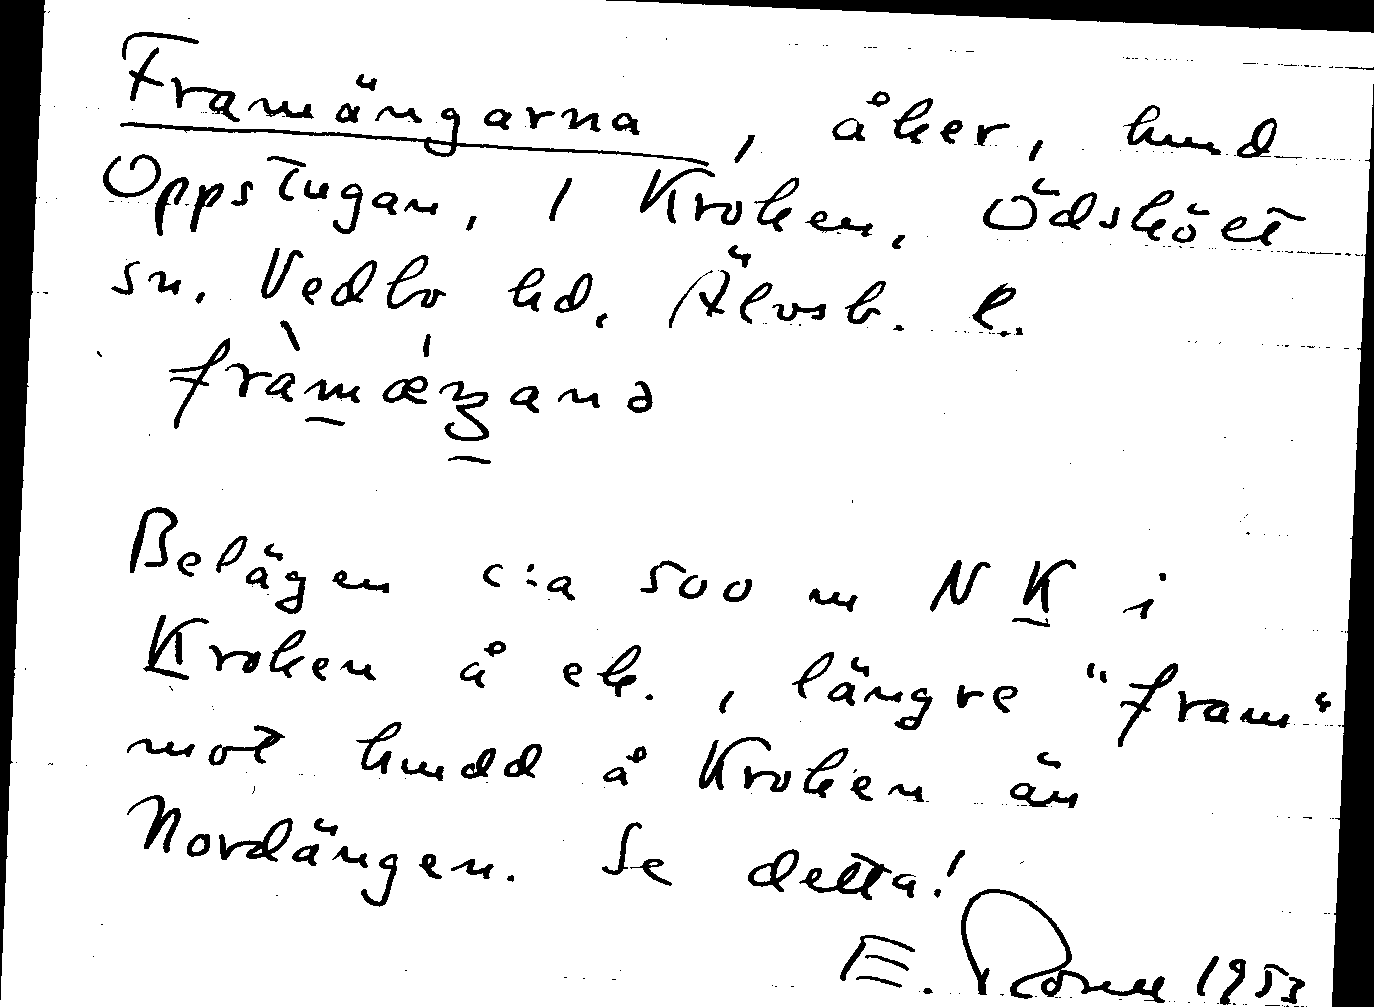 Framängarna, åker, hmd
Oppstugan, 1 Kroken, Ödsköet
sn. Vedbo hd. Älvsb. l.
fràmǽŋana
Belägen c:a 500 m N K i
Kroken å ek., längre "fram"
mot hmdd å Kroken än
Nordängen. Se detta!
E. 1953